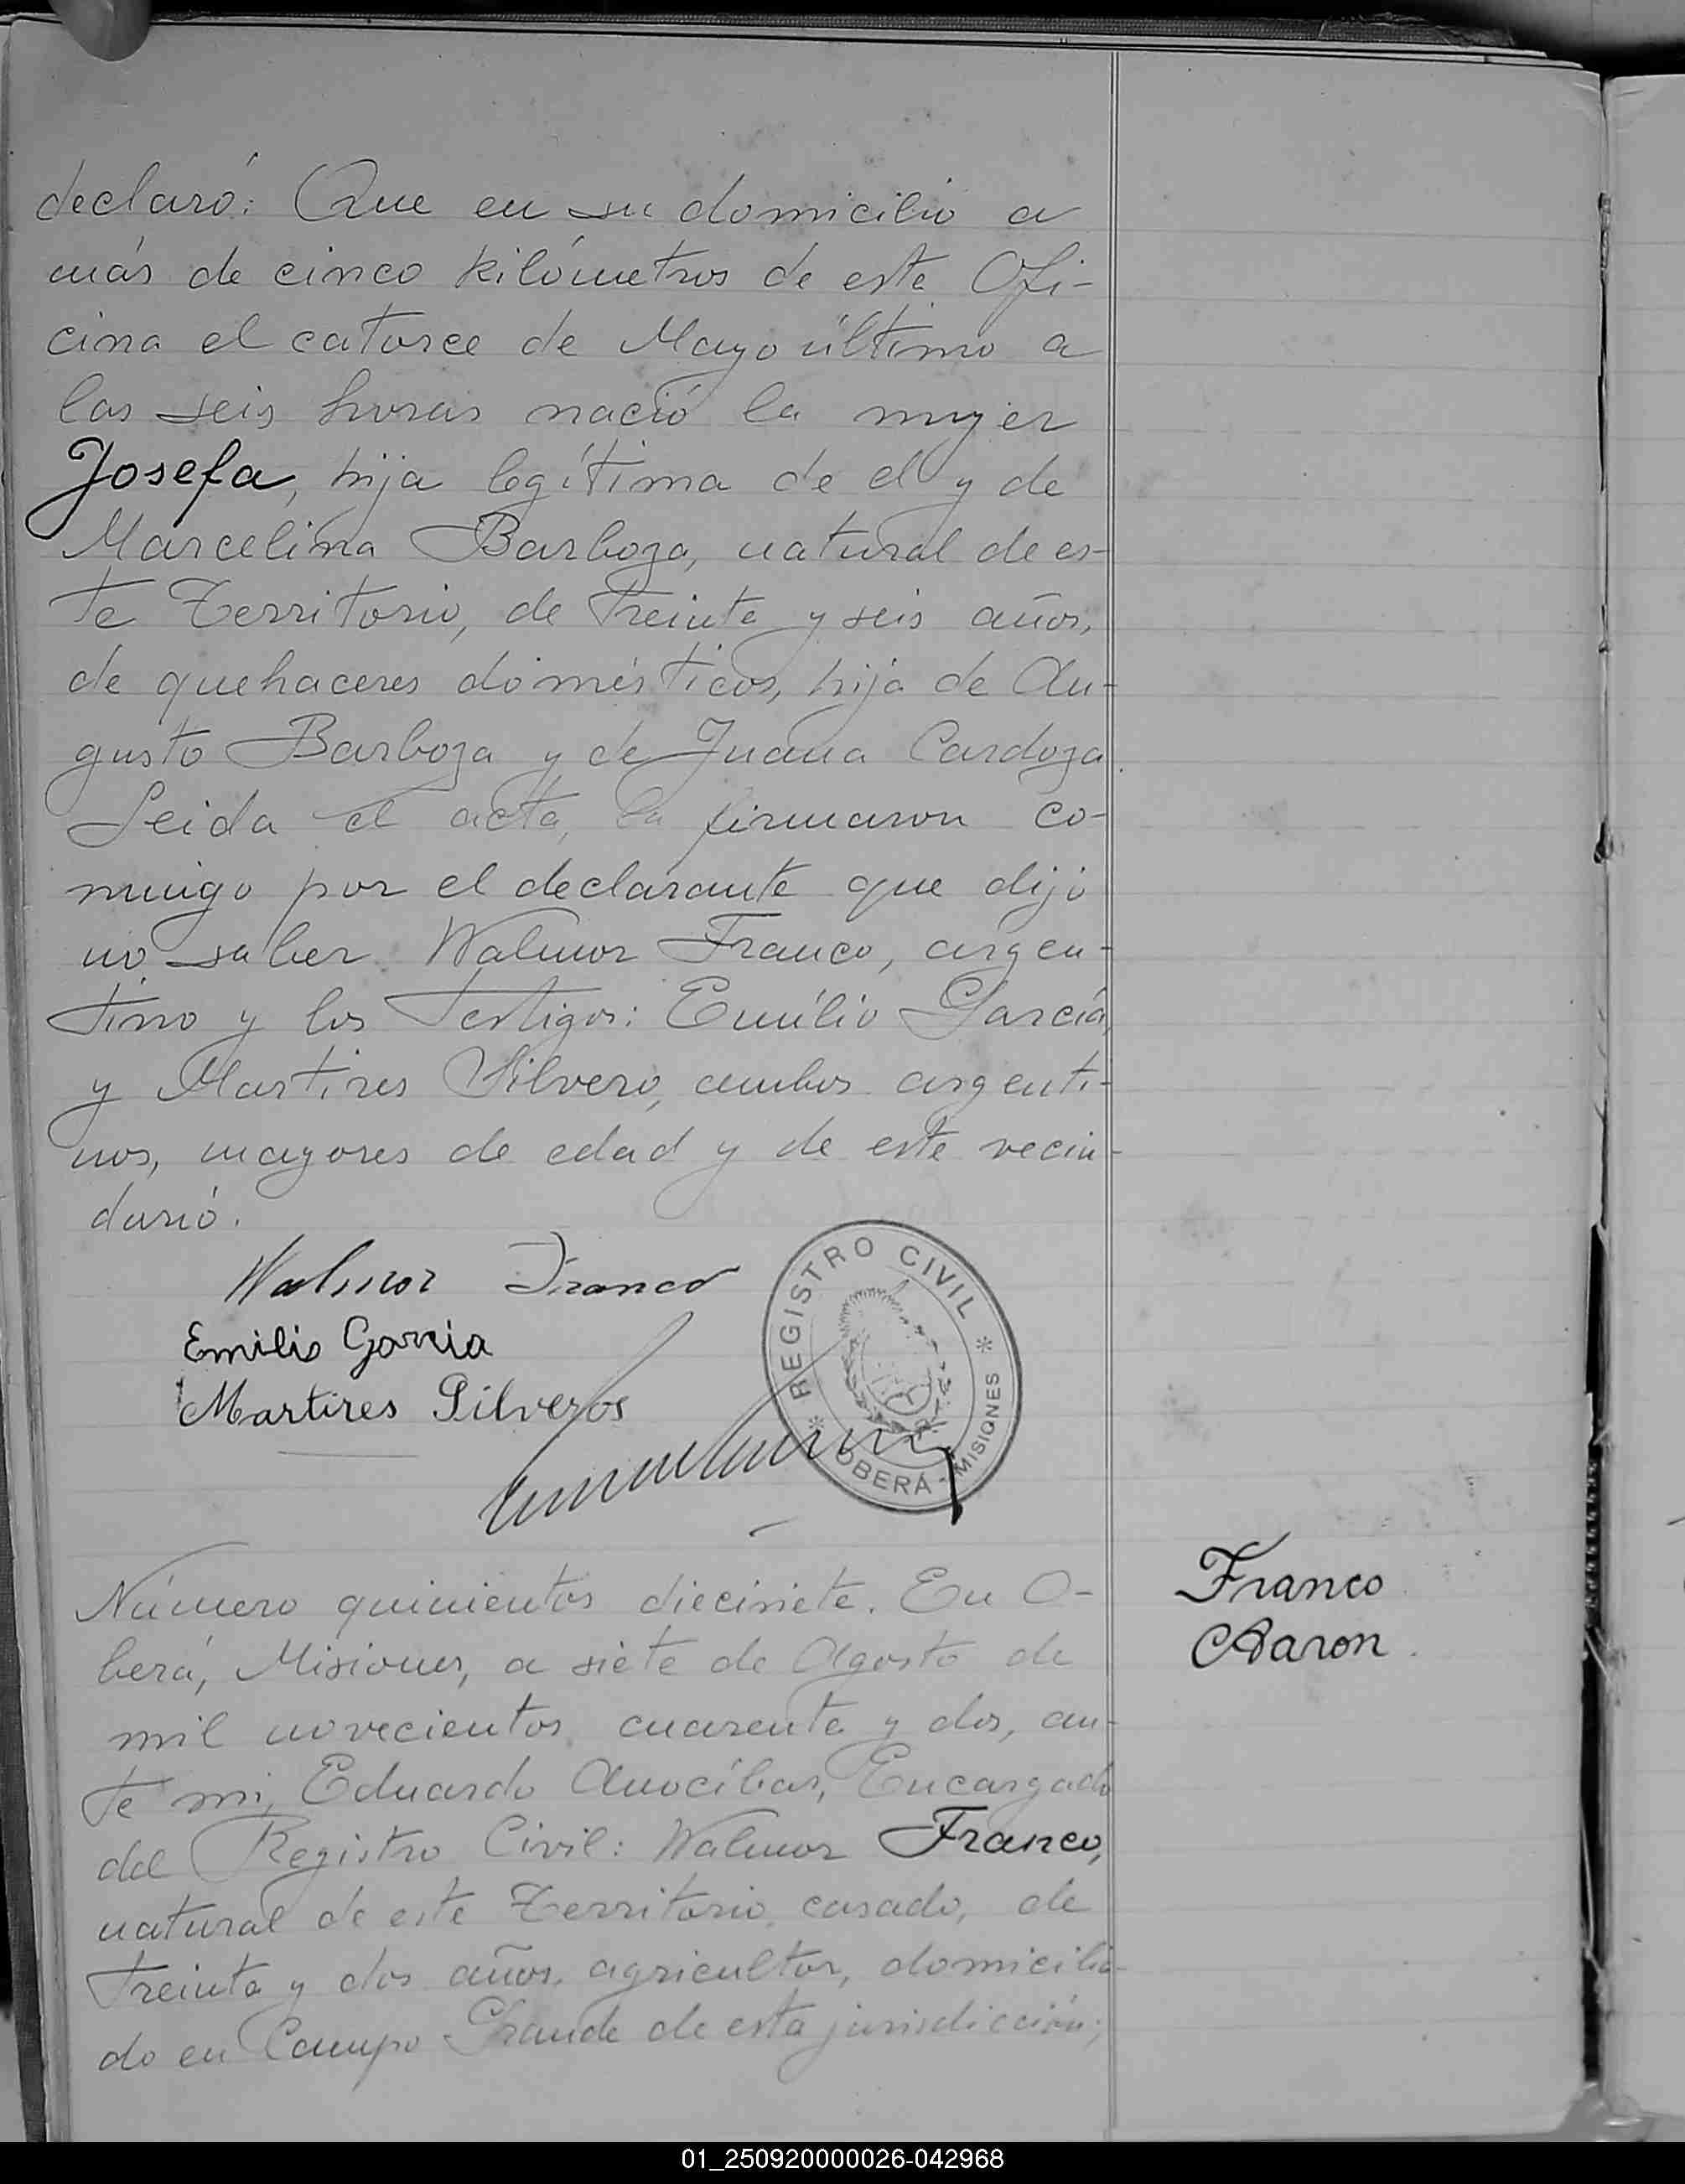 declaró: Que en su domicilio a
más de cinco kilómetros de esta Ofi-
cina el catorce de Mayo último a
las seis horas nació la mujer
Josefa, hija legítima de el y de
Marcelina Barboza, natural de es-
te Territorio, de treinta y seis años,
de quehaceres domésticos, hija de Au-
gusto Barboza y de Juana Cardoza.
Leida el acta, la firmaron co-
nmigo por el declarante que dijo
no saber Walmor Franco, argen-
tino y los testigos: Emilio García,
y Martires Silvero, ambos argenti-
nos, mayores de edad y de este vecin-
dario.
Walmor Franco
Emilio Garcia
Martires Silveros
REGISTRO CIVIL
* OBERÁ - MISIONES *
Número quinientos diecisiete. En O-
berá, Misiones, a siete de Agosto de
mil novecientos cuarenta y dos, an-
te mi, Eduardo Anocíbar, Encargado
del Registro Civil: Walmor Franco,
natural de este Territorio, casado, de
treinta y dos años, agricultor, domicilia-
do en Campo Grande de esta jurisdicción;
Franco
Aaron.
01_250920000026-042968